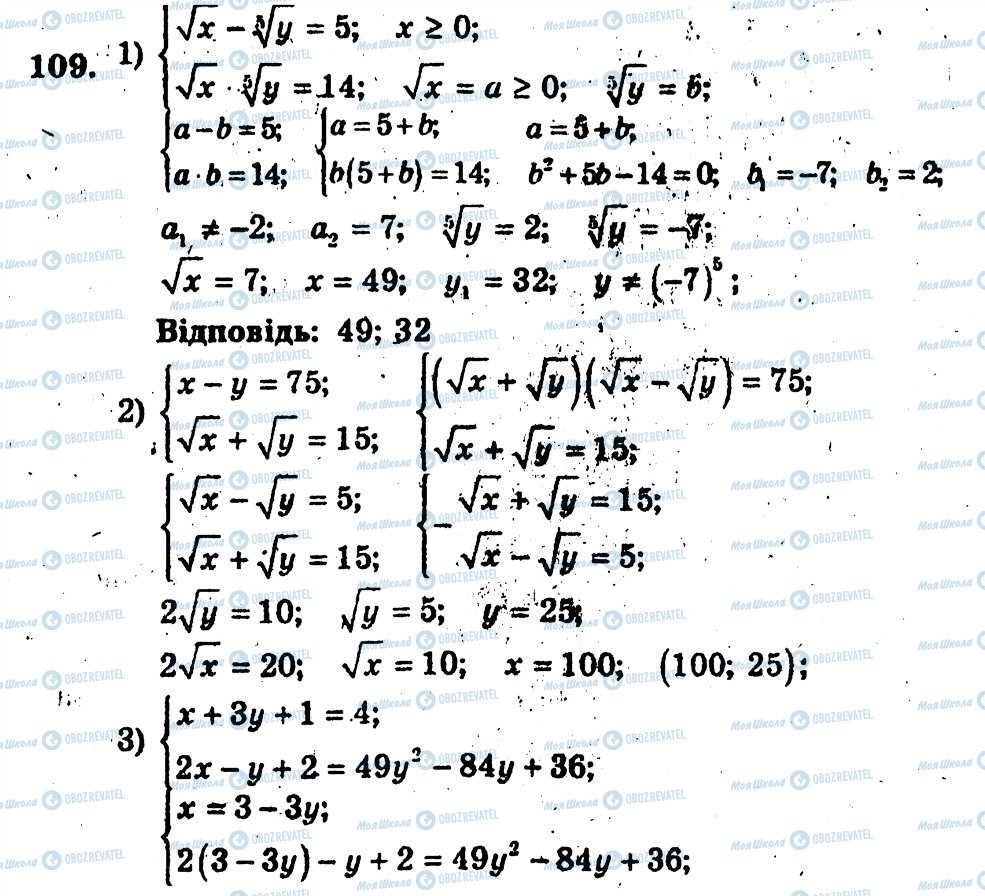 109. 1) { √x − ⁵√y = 5; x ≥ 0;
√x · ⁵√y = 14; √x = a ≥ 0; ⁵√y = b;
{ a − b = 5; { a = 5 + b; a = 5 + b;
a · b = 14; b(5 + b) = 14; b² + 5b − 14 = 0; b₁ = −7; b₂ = 2;
a₁ ≠ −2; a₂ = 7; ⁵√y = 2; ⁵√y = −7;
√x = 7; x = 49; y₁ = 32; y ≠ (−7)⁵;
Відповідь: 49; 32
2) { x − y = 75; { (√x + √y)(√x − √y) = 75;
√x + √y = 15; √x + √y = 15;
{ √x − √y = 5; { − √x + √y = 15;
√x + √y = 15; √x − √y = 5;
2√y = 10; √y = 5; y = 25;
2√x = 20; √x = 10; x = 100; (100; 25);
3) { x + 3y + 1 = 4;
2x − y + 2 = 49y² − 84y + 36;
{ x = 3 − 3y;
2(3 − 3y) − y + 2 = 49y² − 84y + 36;
Моя Школа OBOZREVATEL